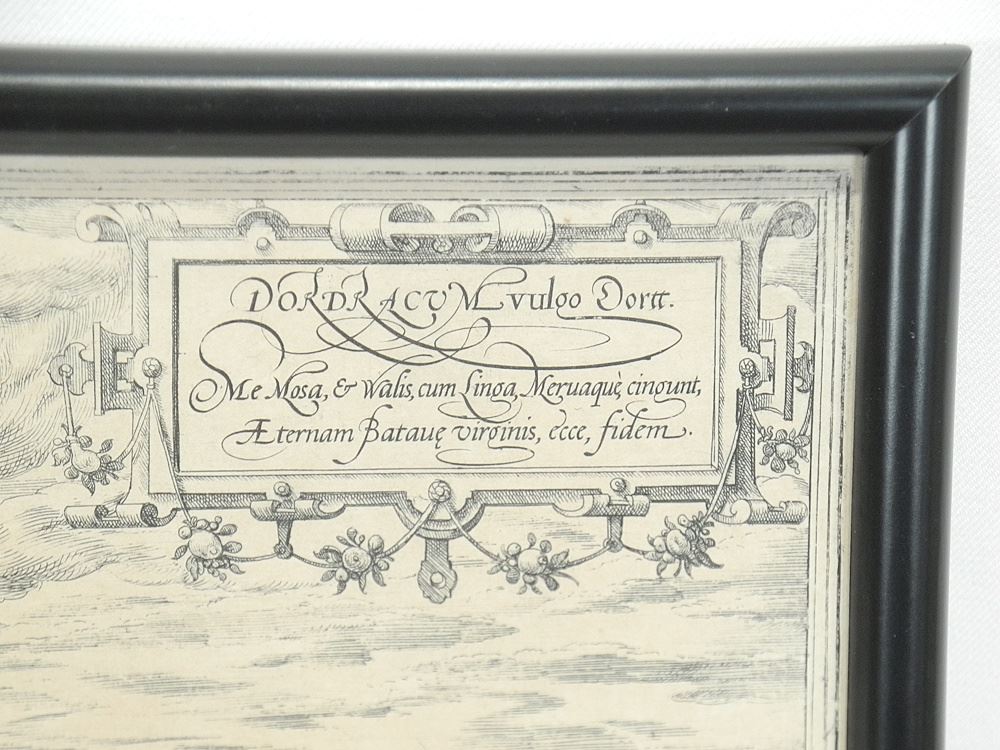 DORDRACVM vulgo Dortt.
Me Mosa, & Walis, cum Linga, Meruaquè cingunt,
Æternam Batauę virginis, ecce, fidem.